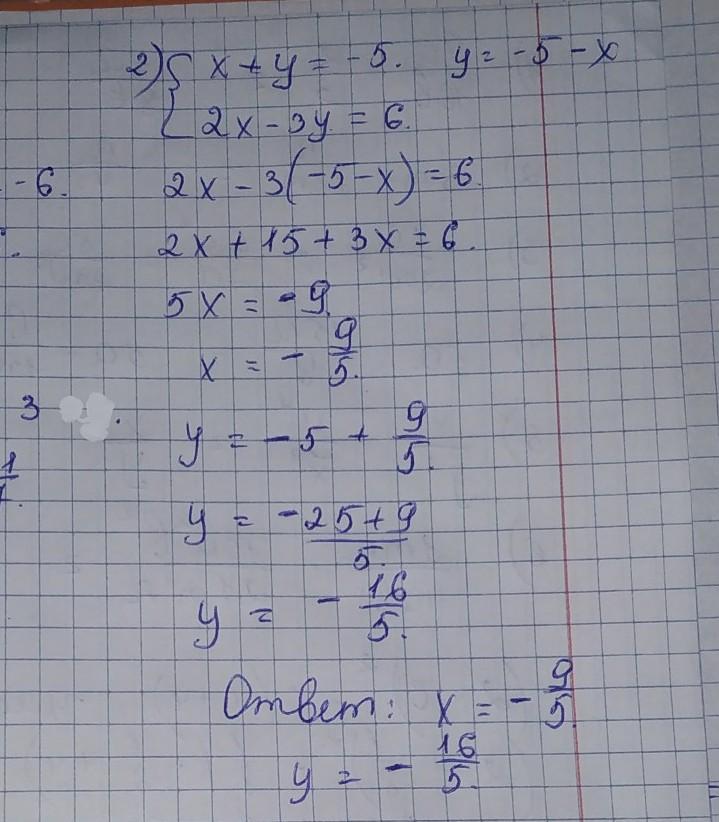 2) { x + y = -5. y = -5 - x
2x - 3y = 6.
-6. 2x - 3(-5 - x) = 6.
2x + 15 + 3x = 6.
5x = -9
x = - 9/5.
3
y = -5 + 9/5.
y = -25+9/5.
y = - 16/5.
Ответ: x = - 9/5.
y = - 16/5.